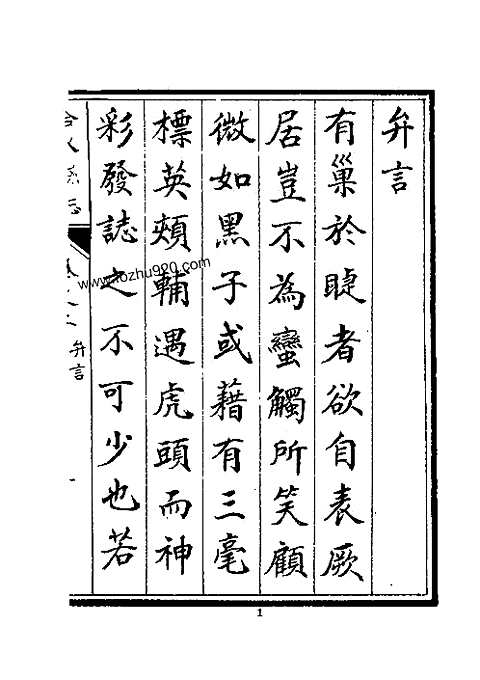 弁言
有巢於睫者欲自表厥
居豈不為蠻觸所笑顧
微如黑子或藉有三毫
標英頰輔遇虎頭而神
彩發誌之不可少也若
弁言
一
www.lozhu920.com
1